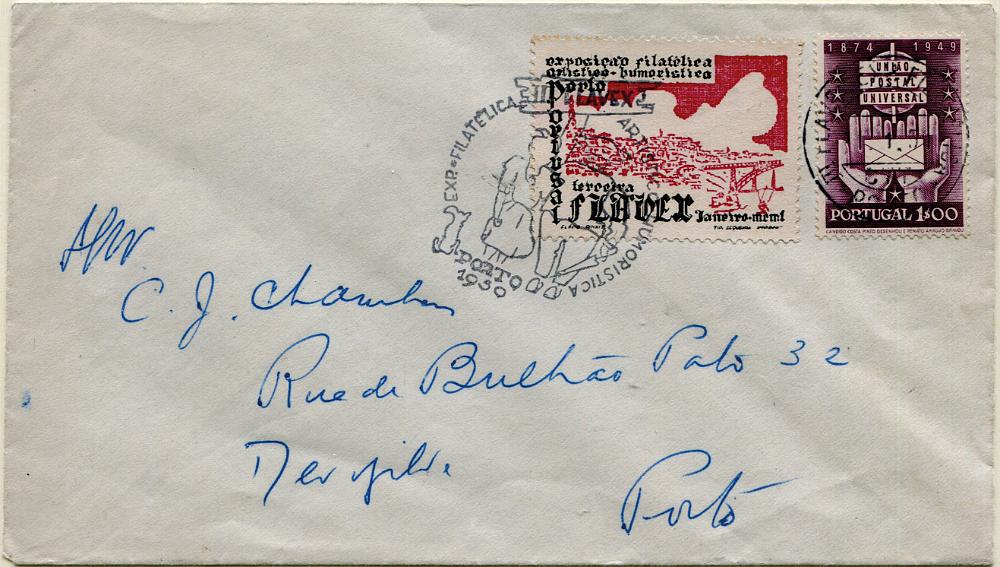 exposição filatélica
artistico-humoristica
Porto
Portugal
terceira
FLAVEX Janeiro-mcml
1874 1949
UNIÃO
POSTAL
UNIVERSAL
PORTUGAL 1$00
EXP. FILATÉLICA
III FLAVEX
HUMORISTICA
PORTO
1950
C. J. Chambers
Rua de Bulhão Pato 32
Porto